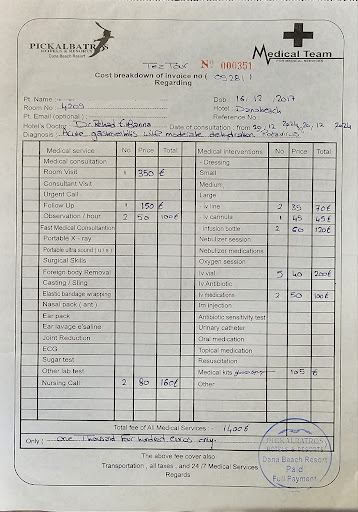 PICKALBATROS
HOTELS & RESORTS
Dana Beach Resort
Medical Team
FOR MEDICAL SERVICES
Tez Tour
Nº 000351
Cost breakdown of invoice no ( 05281 )
Regarding
Pt. Name :
Dob : 16.12.2017
Room No : 4209
Hotel : Danabeach
Pt. Email (optional) :
Reference No :
Hotel's Doctor
Date of consultation : from 20.12.2024, 20.12.2024
Diagnosis : Acute gastroenteritis with moderate dehydration
Medical service No Price Total
Medical consultation
Room Visit 1 350 €
Consultant Visit
Urgent Call
Follow Up 1 150 €
Observation / hour 2 50 100€
Fast Medical Consultantion
Portable X - ray
Portable ultra sound ( u/s )
Surgical Skills
Foreign body Removal
Casting / Sling
Elastic bandage wrapping
Nasal pack ( ant )
Ear pack
Ear lavage e'saline
Joint Reduction
ECG
Sugar test
Other lab test
Nursing Call 2 80 160€
Medical interventions No Price Total
- Dressing
Small
Medium
Large
- Iv line 2 35 70€
- Iv cannula 1 45 45€
- Infusion bottle 2 60 120€
Nebulizer session
Nebulizer medications
Oxygen session
Iv vial 5 40 200€
Iv Antibiotic
Iv medications 2 50 100€
Im injection
Antibiotic sensitivity test
Urinary catheter
Oral medication
Topical medication
Resuscitation
Medical kits 105 €
Other
Total fee of All Medical Services : 1400€
Only ( one thousand four hundred euros only
The above fee cover also
Transportation , all taxes , and 24 /7 Medical Services
Regards
PICKALBATROS
HOTELS & RESORTS
Dana Beach Resort
Paid
Full Payment